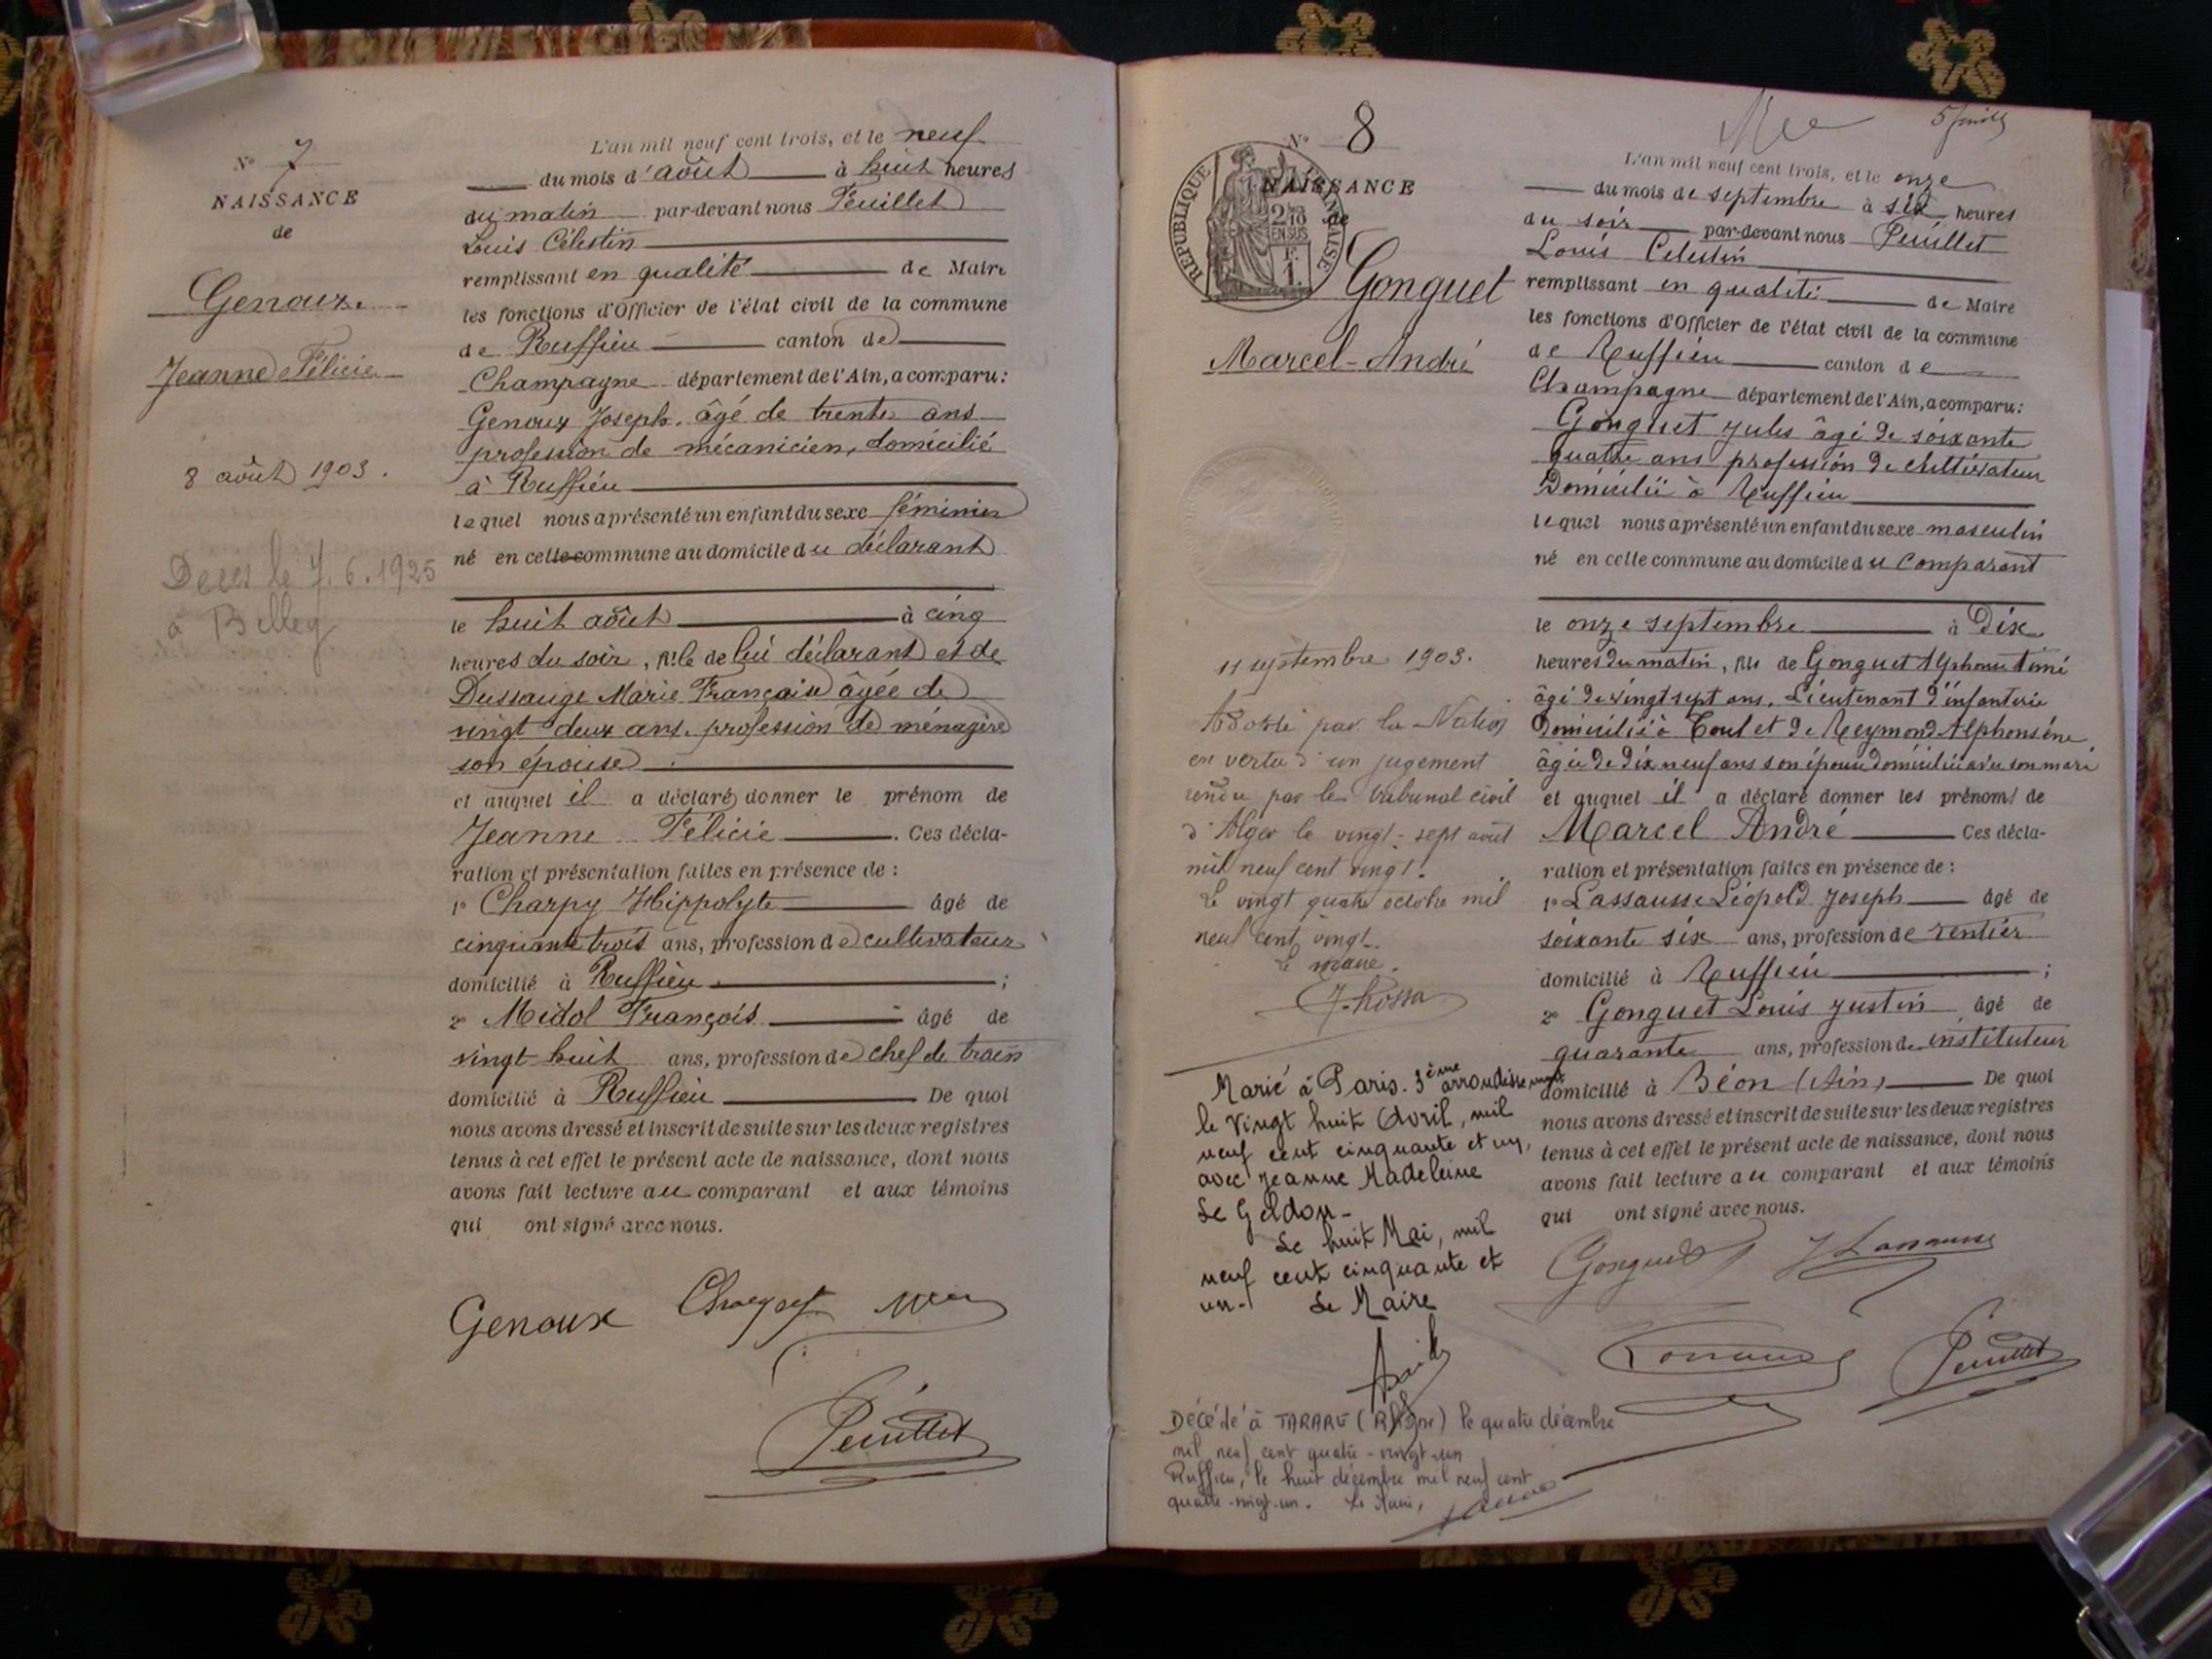 N° 7
NAISSANCE
de
Genoux
Jeanne Félicie
8 août 1903.
Décès le 7.6.1925
à Belley
L'an mil neuf cent trois, et le neuf
du mois d'août à huit heures
du matin par-devant nous Peuillet
Louis Célestin
remplissant en qualité de Maire
les fonctions d'Officier de l'état civil de la commune
de Ruffieu canton de
Champagne département de l'Ain, a comparu:
Genoux Joseph, âgé de trente ans
profession de mécanicien, domicilié
à Ruffieu
lequel nous a présenté un enfant du sexe féminin
né en cette commune au domicile du déclarant
le huit août à cinq
heures du soir, fille de lui déclarant et de
Dussauge Marie Françoise âgée de
vingt deux ans, profession de ménagère
son épouse
et auquel il a déclaré donner le prénom de
Jeanne Félicie. Ces décla-
ration et présentation faites en présence de :
1° Charpy Hippolyte âgé de
cinquante trois ans, profession de cultivateur
domicilié à Ruffieu ;
2° Midol François âgé de
vingt huit ans, profession de chef de train
domicilié à Ruffieu De quoi
nous avons dressé et inscrit de suite sur les deux registres
tenus à cet effet le présent acte de naissance, dont nous
avons fait lecture au comparant et aux témoins
qui ont signé avec nous.
Genoux
Peuillet
N° 8
NAISSANCE
de
REPUBLIQUE FRANÇAISE
2/10
EN SUS
F.
1.
Gonguet
Marcel-André
11 septembre 1903.
Adopté par la Nation
en vertu d'un jugement
rendu par le tribunal civil
d'Alger le vingt-sept août
mil neuf cent vingt.
Le vingt quatre octobre mil
neuf cent vingt.
Le maire.
Marié à Paris. 3ème arrondissement
le Vingt huit Avril, mil
neuf cent cinquante et un,
avec Jeanne Madeleine
Le Goldon-
Le huit Mai, mil
neuf cent cinquante et
un.- Le Maire
Décédé à TARARE (Rhône) le quatre décembre
mil neuf cent quatre-vingt-un
Ruffieu, le huit décembre mil neuf cent
quatre-vingt-un. Le Maire,
L'an mil neuf cent trois, et le onze
du mois de septembre à six heures
du soir par-devant nous Peuillet
Louis Célestin
remplissant en qualité de Maire
les fonctions d'Officier de l'état civil de la commune
de Ruffieu canton de
Champagne département de l'Ain, a comparu:
Gonguet Jules âgé de soixante
quatre ans profession de cultivateur
Domicilié à Ruffieu
lequel nous a présenté un enfant du sexe masculin
né en cette commune au domicile du Comparant
le onze septembre à Dix
heures du matin, fils de Gonguet Alphonse Aimé
âgé de vingt sept ans, Lieutenant d'infanterie
Domicilié à Toul et de Reymond Alphonsine
âgée de dix neuf ans son épouse domiciliée avec son mari
et auquel il a déclaré donner les prénoms de
Marcel André Ces décla-
ration et présentation faites en présence de :
1° Lassausse Léopold Joseph âgé de
soixante six ans, profession de rentier
domicilié à Ruffieu ;
2° Gonguet Louis Justin âgé de
quarante ans, profession de instituteur
domicilié à Béon (Ain) De quoi
nous avons dressé et inscrit de suite sur les deux registres
tenus à cet effet le présent acte de naissance, dont nous
avons fait lecture au comparant et aux témoins
qui ont signé avec nous.
Gonguet
Peuillet